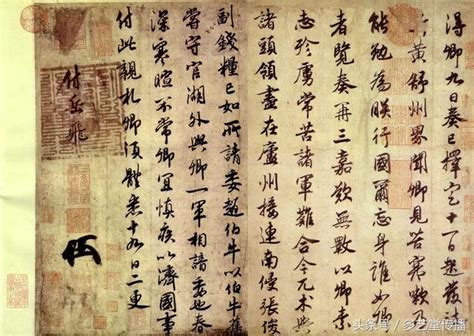 得卿九日奏已擇定十一日起發往
蘄黃舒州界聞卿見苦寒嗽乃
能勉為朕行國爾忘身誰如卿
者覽奏再三嘉歎無斁以卿素
志殄虜常苦諸軍難合今兀朮與
諸頭領盡在廬州接連南侵張俊
副錢糧已如所請委趙伯牛以伯牛舊
嘗守官湖外與卿一軍相諳委也春
深寒暄不常卿宜慎疾以濟國事
付此親札卿須體悉十九日二更
付岳飛
头条号 / 多艺堂传播